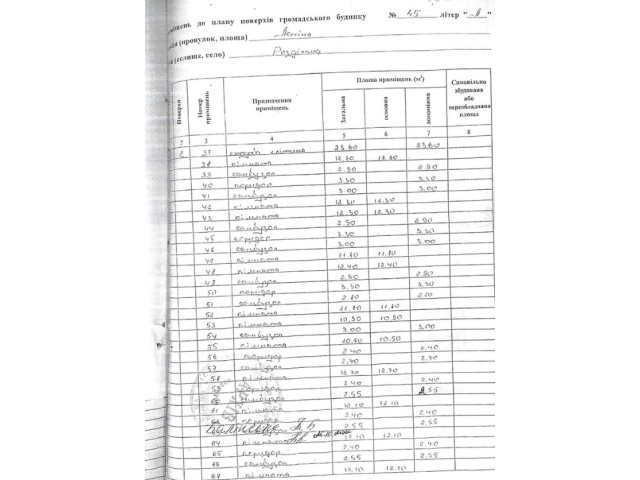 міщень до плану поверхів громадського будинку № 45 літер "А"
(провулок, площа) Леніна
(селище, село) Роздільна
Поверхи Номер приміщень Призначення приміщень Площа приміщень (м²) Самовільно збудована або переобладнана площа
Загальна основна допоміжна
2 3 4 5 6 7 8
2 37 сходова клітина 23.60 23.60
38 кімната 12.80 12.80
39 санвузол 2.90 2.90
40 коридор 3.30 3.30
41 санвузол 3.00 3.00
42 кімната 12.30 12.30
43 кімната 12.30 12.30
44 санвузол 2.90 2.90
45 коридор 3.30 3.30
46 санвузол 3.00 3.00
47 кімната 11.80 11.80
48 кімната 12.40 12.40
49 санвузол 2.80 2.80
50 коридор 3.30 3.30
51 санвузол 2.80 2.80
52 кімната 11.80 11.80
53 кімната 10.50 10.50
54 санвузол 3.00 3.00
55 кімната 10.50 10.50
56 коридор 2.40 2.40
57 санвузол 2.70 2.70
58 кімната 12.70 12.70
59 коридор 2.40 2.40
60 санвузол 2.55 2.55
61 кімната 12.10 12.10
62 коридор 2.40 2.40
2.55 2.55
64 кімната 12.10 12.10
65 коридор 2.40 2.40
66 санвузол 2.55 2.55
67 кімната 12.10 12.10